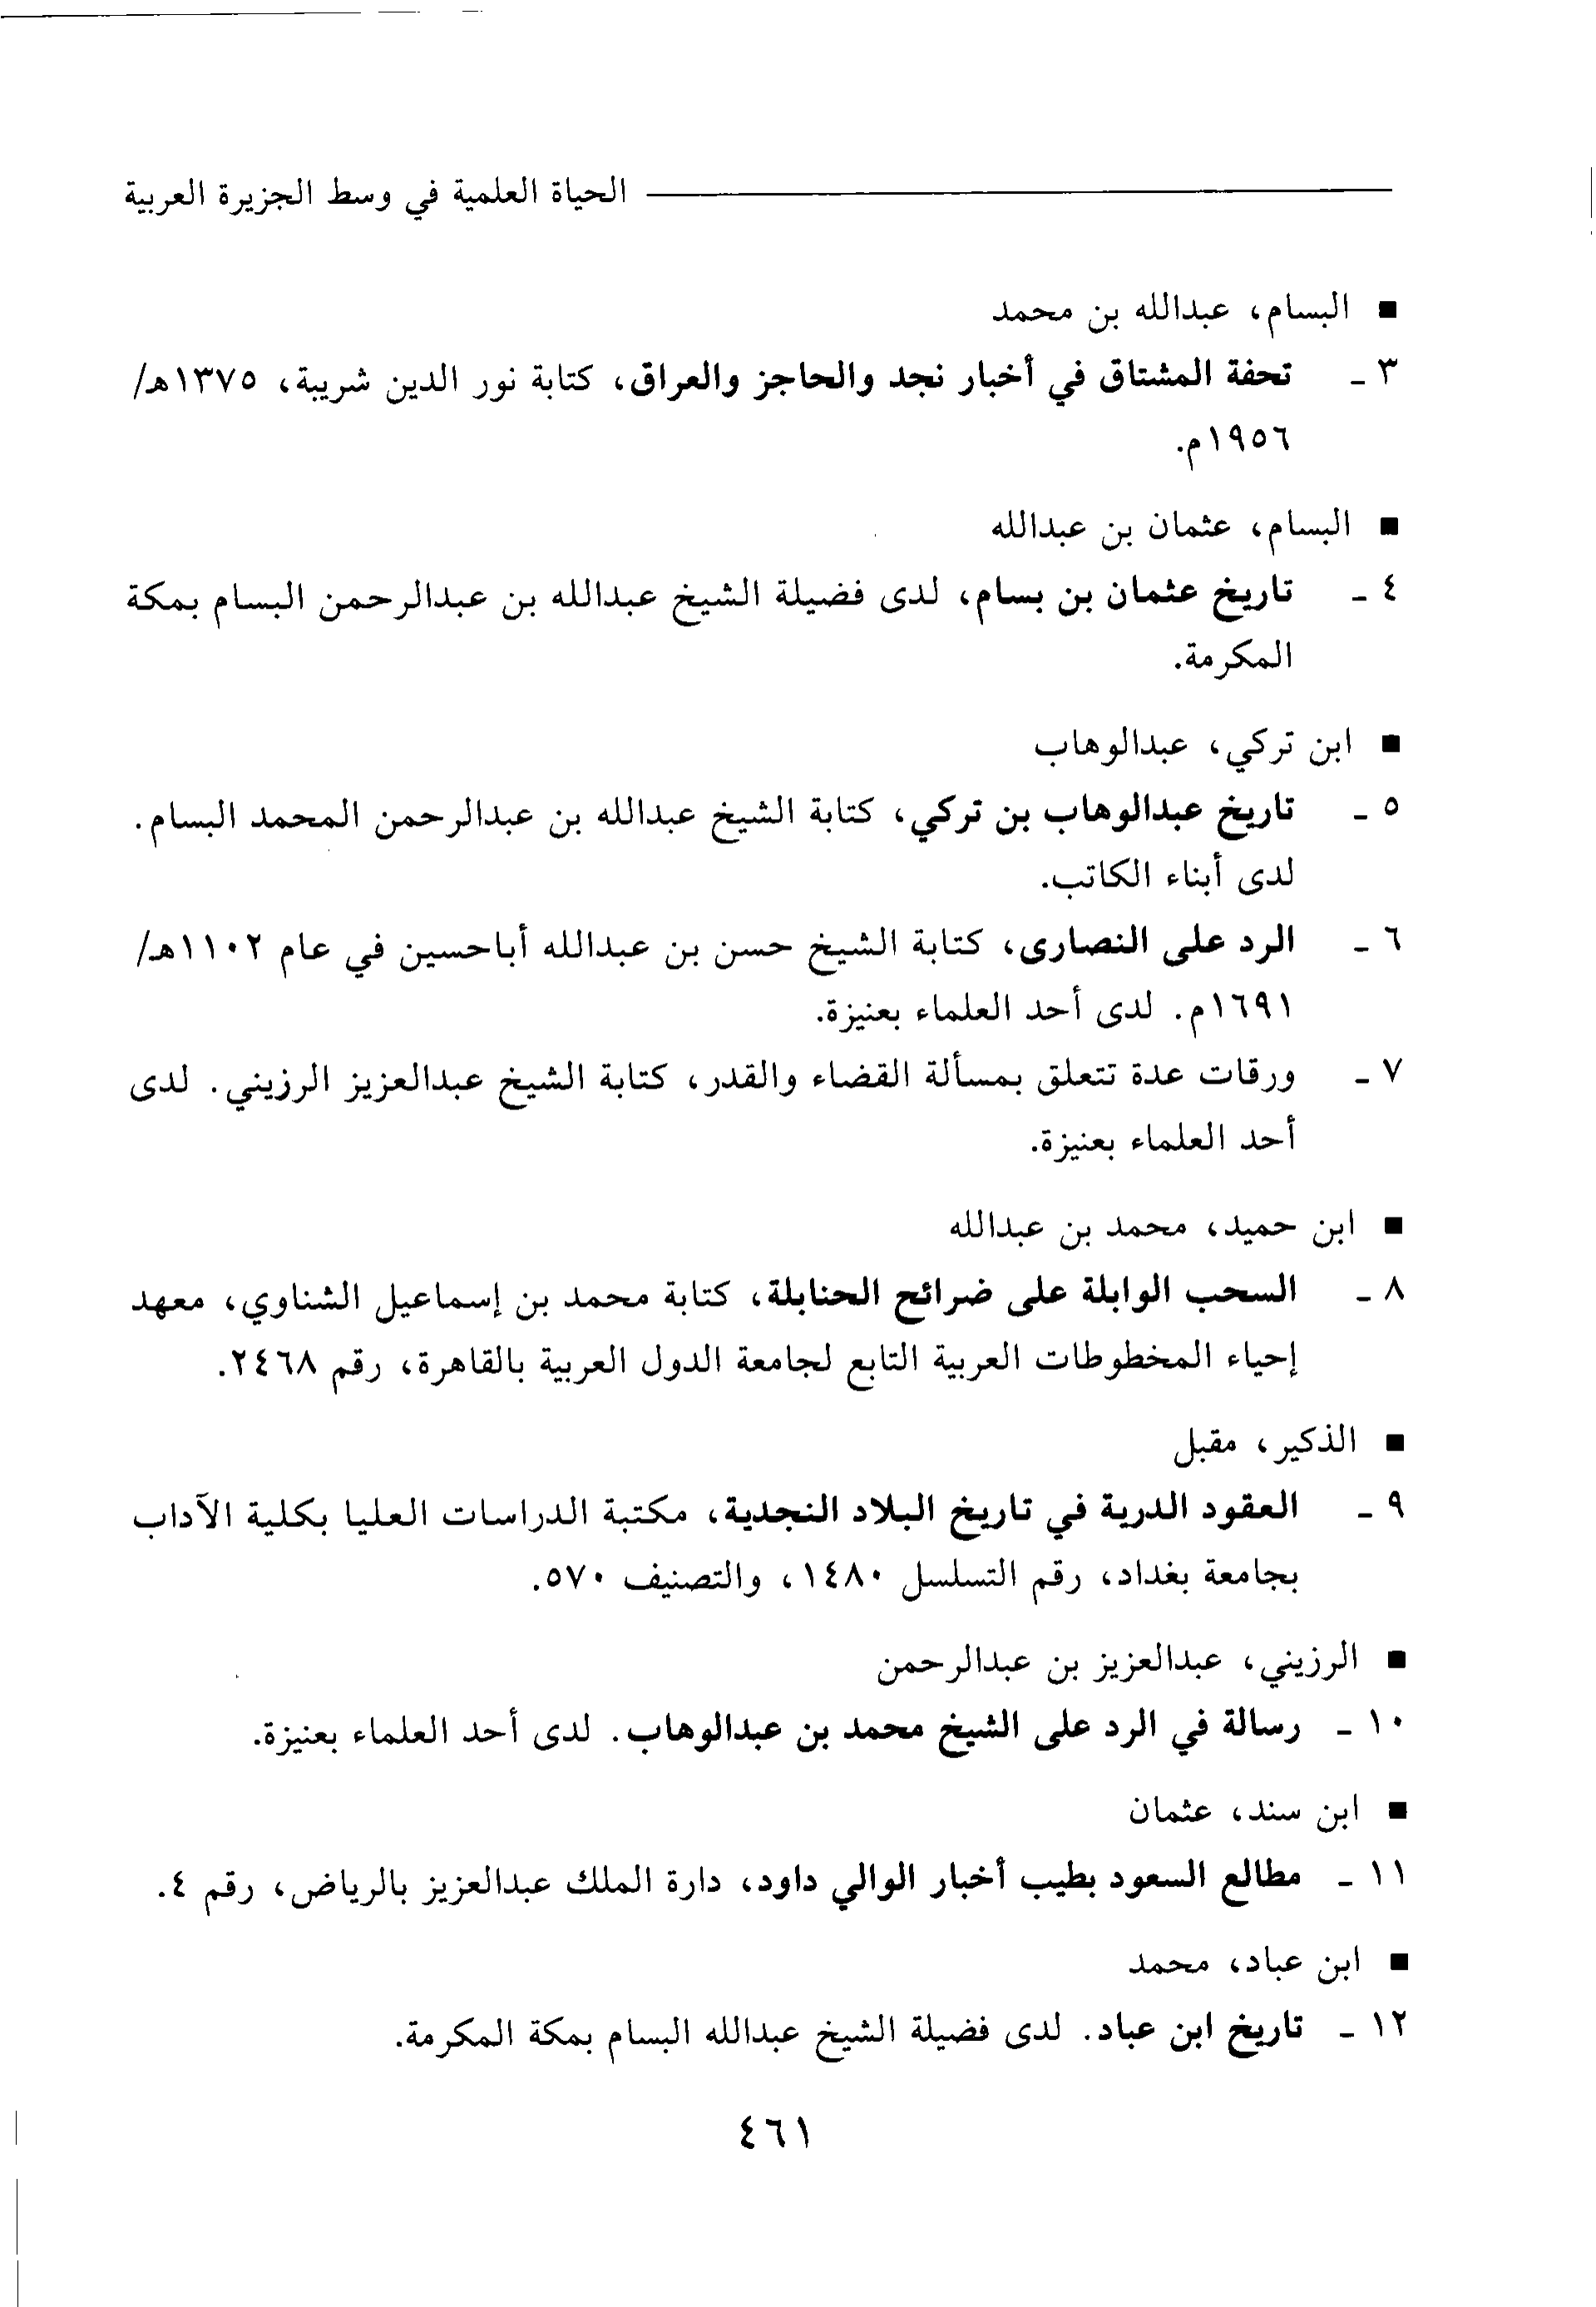 الحياة العلمية في وسط الجزيرة العربية
■ البسام، عبدالله بن محمد
٣ ـ تحفة المشتاق في أخبار نجد والحاجز والعراق، كتابة نور الدين شريبة، ١٣٧٥هـ/
١٩٥٦م.
■ البسام، عثمان بن عبدالله
٤ ـ تاريخ عثمان بن بسام، لدى فضيلة الشيخ عبدالله بن عبدالرحمن البسام بمكة
المكرمة.
■ ابن تركي، عبدالوهاب
٥ ـ تاريخ عبدالوهاب بن تركي، كتابة الشيخ عبدالله بن عبدالرحمن المحمد البسام.
لدى أبناء الكاتب.
٦ ـ الرد على النصارى، كتابة الشيخ حسن بن عبدالله أباحسين في عام ١١٠٢هـ/
١٦٩١م. لدى أحد العلماء بعنيزة.
٧ ـ ورقات عدة تتعلق بمسألة القضاء والقدر، كتابة الشيخ عبدالعزيز الرزيني. لدى
أحد العلماء بعنيزة.
■ ابن حميد، محمد بن عبدالله
٨ ـ السحب الوابلة على ضرائح الحنابلة، كتابة محمد بن إسماعيل الشناوي، معهد
إحياء المخطوطات العربية التابع لجامعة الدول العربية بالقاهرة، رقم ٢٤٦٨.
■ الذكير، مقبل
٩ ـ العقود الدرية في تاريخ البلاد النجدية، مكتبة الدراسات العليا بكلية الآداب
بجامعة بغداد، رقم التسلسل ١٤٨٠، والتصنيف ٥٧٠.
■ الرزيني، عبدالعزيز بن عبدالرحمن
١٠ ـ رسالة في الرد على الشيخ محمد بن عبدالوهاب. لدى أحد العلماء بعنيزة.
■ ابن سند، عثمان
١١ ـ مطالع السعود بطيب أخبار الوالي داود، دارة الملك عبدالعزيز بالرياض، رقم ٤.
■ ابن عباد، محمد
١٢ ـ تاريخ ابن عباد. لدى فضيلة الشيخ عبدالله البسام بمكة المكرمة.
٤٦١